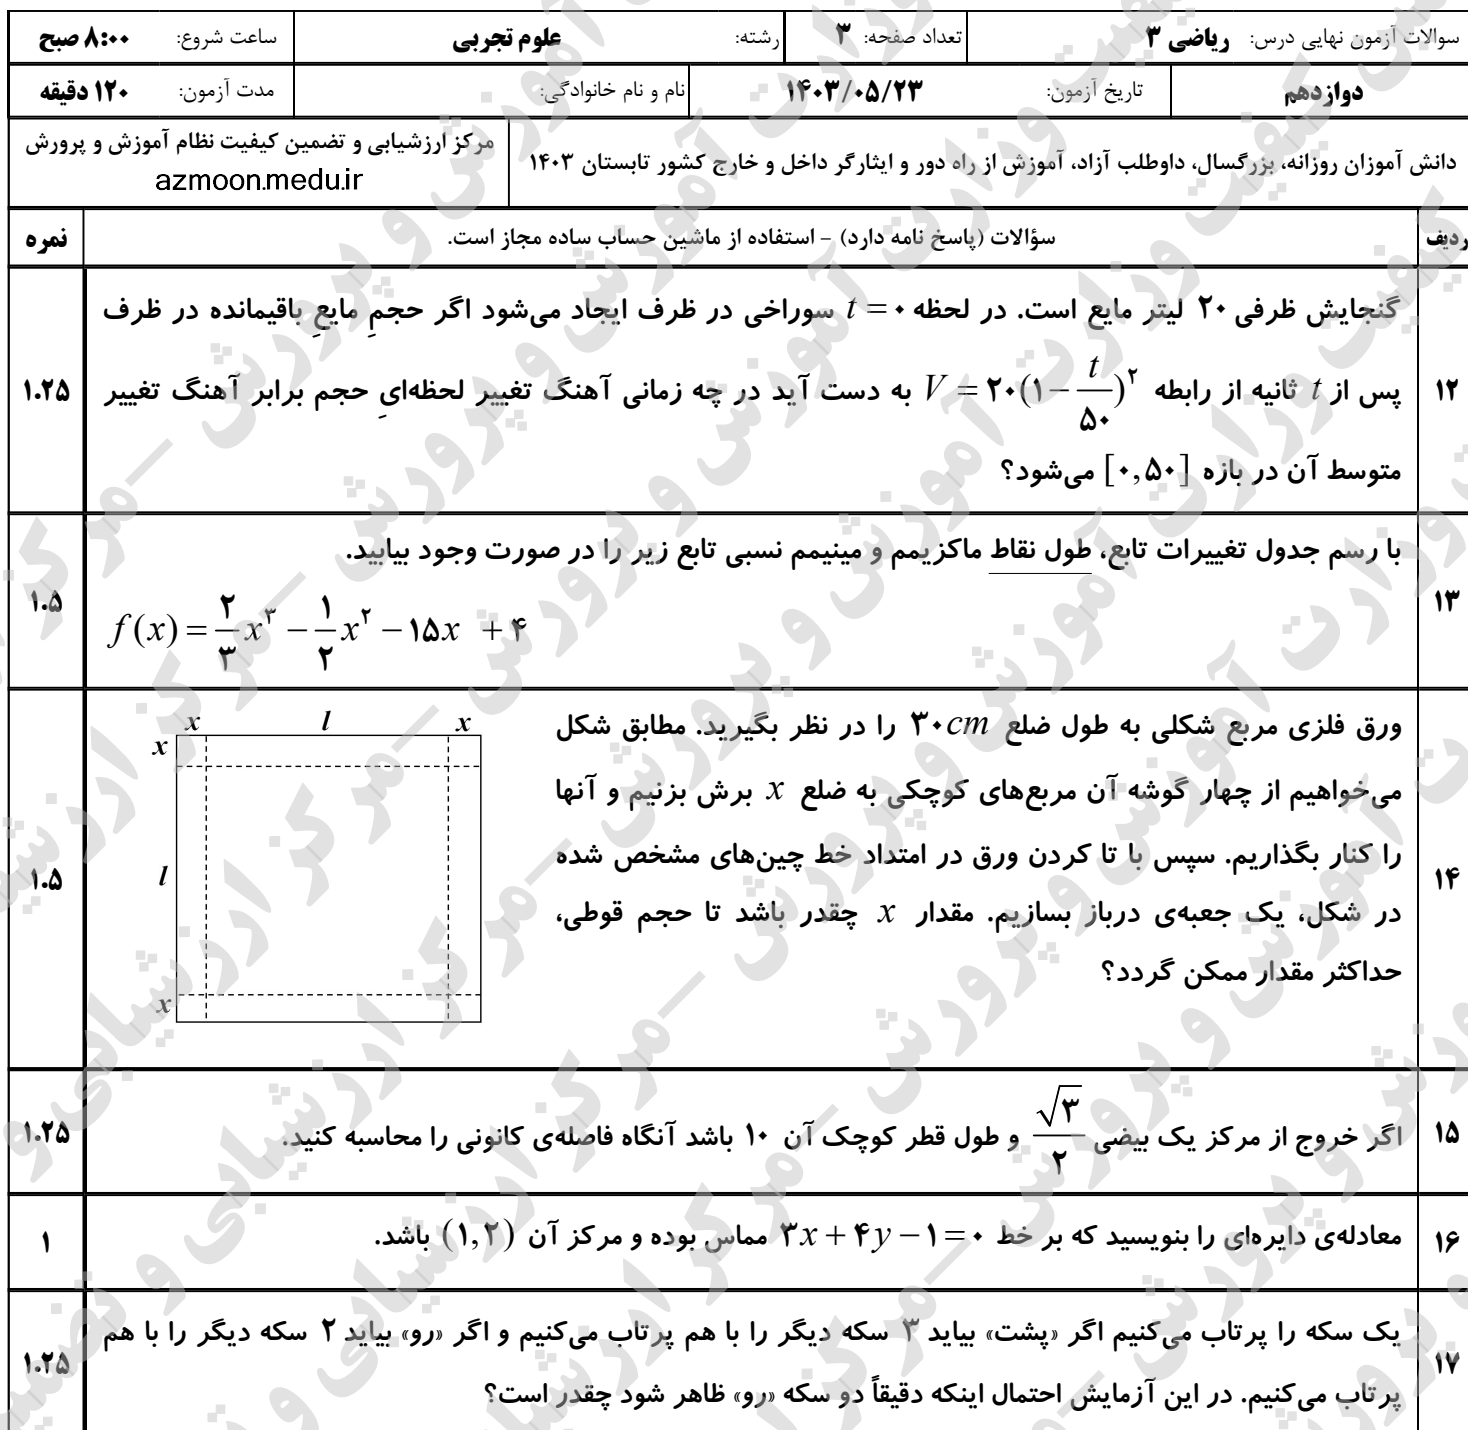 سوالات آزمون نهایی درس: ریاضی ۳ تعداد صفحه: ۳ رشته: علوم تجربی ساعت شروع: ۸:۰۰ صبح
دوازدهم تاریخ آزمون: ۱۴۰۳/۰۵/۲۳ نام و نام خانوادگی: مدت آزمون: ۱۲۰ دقیقه
دانش آموزان روزانه، بزرگسال، داوطلب آزاد، آموزش از راه دور و ایثارگر داخل و خارج کشور تابستان ۱۴۰۳ مرکز ارزشیابی و تضمین کیفیت نظام آموزش و پرورش
azmoon.medu.ir
ردیف سؤالات (پاسخ نامه دارد) - استفاده از ماشین حساب ساده مجاز است. نمره
گنجایش ظرفی ۲۰ لیتر مایع است. در لحظه t = ۰ سوراخی در ظرف ایجاد می‌شود اگر حجمِ مایعِ باقیمانده در ظرف
۱۲ پس از t ثانیه از رابطه V = ۲۰(۱ - t/۵۰)^۲ به دست آید در چه زمانی آهنگ تغییر لحظه‌ایِ حجم برابر آهنگ تغییر ۱.۲۵
متوسط آن در بازه [۰,۵۰] می‌شود؟
با رسم جدول تغییرات تابع، طول نقاط ماکزیمم و مینیمم نسبی تابع زیر را در صورت وجود بیابید.
۱۳ f(x) = ۲/۳ x^۳ - ۱/۲ x^۲ - ۱۵x + ۴ ۱.۵
ورق فلزی مربع شکلی به طول ضلع ۳۰cm را در نظر بگیرید. مطابق شکل
می‌خواهیم از چهار گوشه آن مربع‌های کوچکی به ضلع x برش بزنیم و آنها
را کنار بگذاریم. سپس با تا کردن ورق در امتداد خط چین‌های مشخص شده
۱۴ ۱.۵
در شکل، یک جعبه‌ی درباز بسازیم. مقدار x چقدر باشد تا حجم قوطی،
حداکثر مقدار ممکن گردد؟
x l x
x
l
x
۱۵ اگر خروج از مرکز یک بیضی √۳/۲ و طول قطر کوچک آن ۱۰ باشد آنگاه فاصله‌ی کانونی را محاسبه کنید. ۱.۲۵
۱۶ معادله‌ی دایره‌ای را بنویسید که بر خط ۳x + ۴y - ۱ = ۰ مماس بوده و مرکز آن (۱,۲) باشد. ۱
یک سکه را پرتاب می‌کنیم اگر «پشت» بیاید ۳ سکه دیگر را با هم پرتاب می‌کنیم و اگر «رو» بیاید ۲ سکه دیگر را با هم
۱۷ ۱.۲۵
پرتاب می‌کنیم. در این آزمایش احتمال اینکه دقیقاً دو سکه «رو» ظاهر شود چقدر است؟